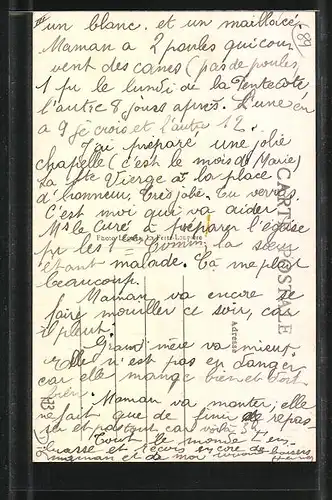 III
89
un blanc. et un mailloicé
Maman a 2 poules qui cou
vent des canes (pas de poules,
1 pr le lundi de la Pentecote
l'autre 8 jours après. L'une en
a 9 je crois et l'autre 12.
J'ai préparé une jolie
chapelle (c'est le mois de Marie)
La Ste Vierge a la place
d'honneur. Tu verras.
C'est moi qui va aider
Mr le Curé à préparer l'église
pr les 1 Commun; la sœur
étant malade. Ça me plait
beaucoup.
Maman va encore se
faire mouiller ce soir, car
il pleut.
Grand'mère va mieux.
Elle n'est pas en danger
car elle mange bien et dort
bien.
Maman va monter, elle
ne fait que de finir de repas-
ser et pourtant car voilà 3
Tout le monde t'em-
brasse et reçois encore de
maman et de moi
CARTE POSTALE
Adresse